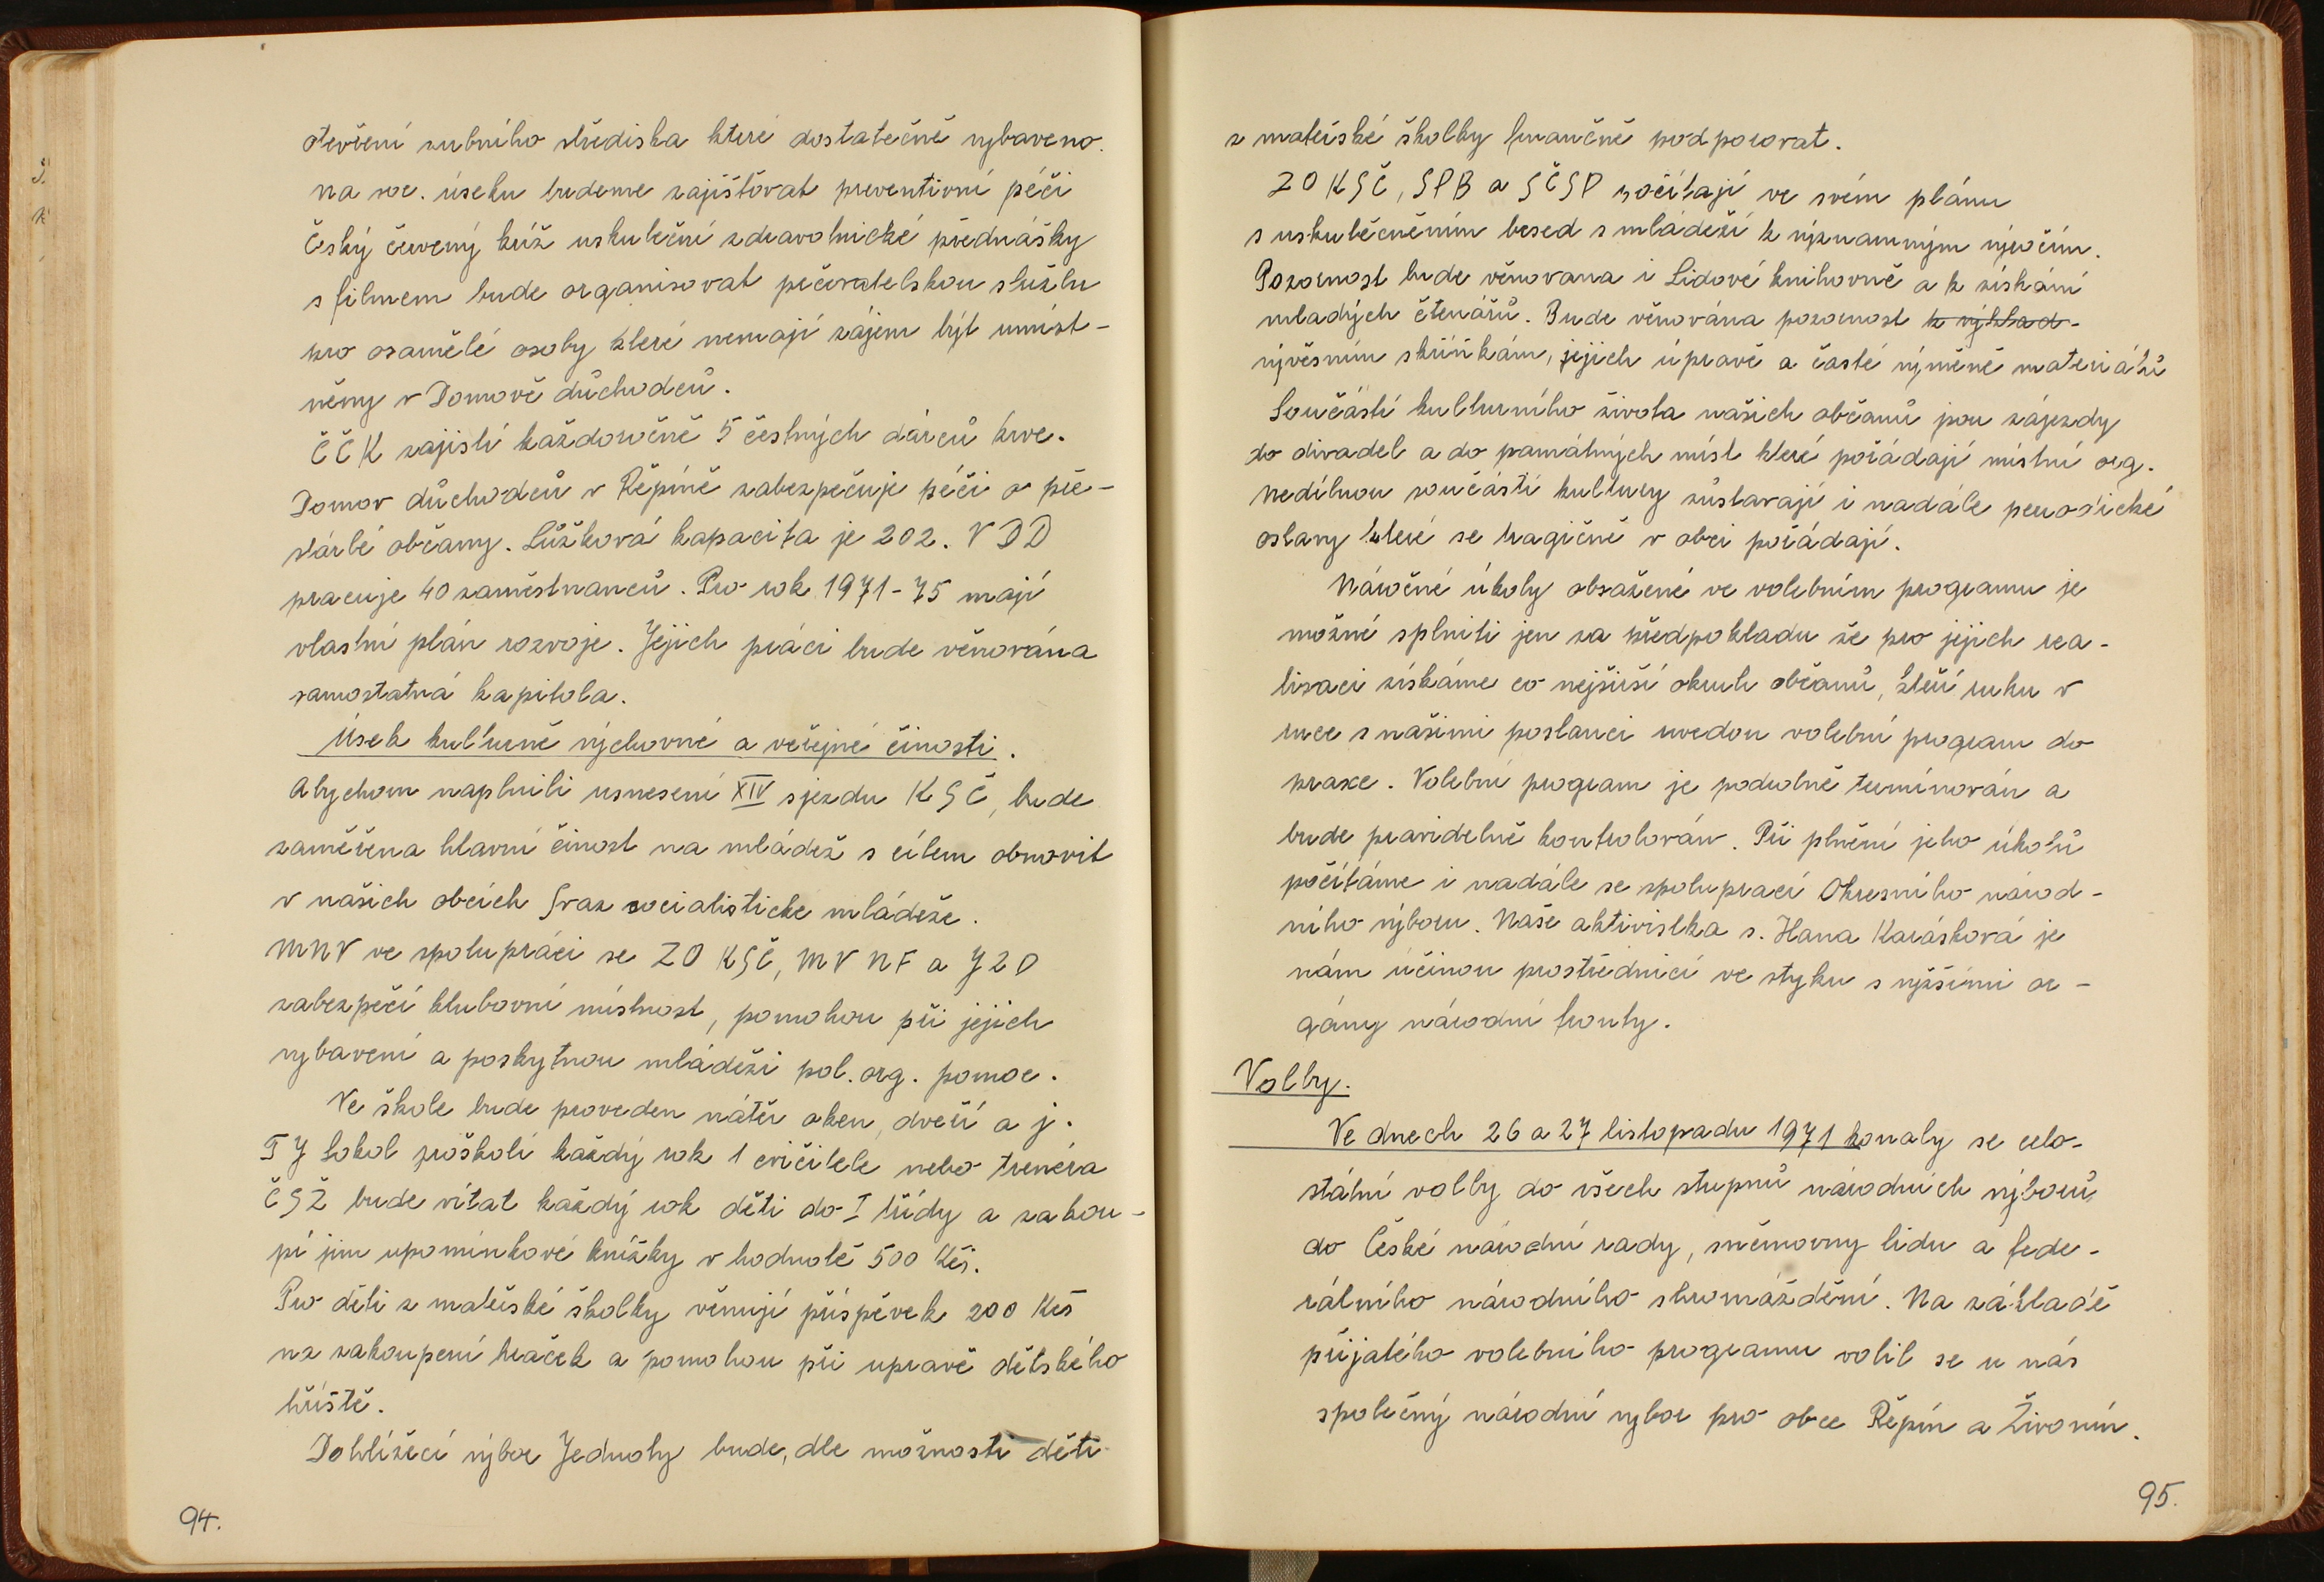 otevření zubního střediska které dostatečně vybaveno.
na soc. úseku budeme zajišťovat preventivní péči
Český červený kříž uskuteční zdravotnické přednášky
s filmem bude organisovat pečovatelskou službu
pro osamělé osoby které nemají zájem být umíst-
něny v Domově důchodců.
ČČK zajistí každoročně 5 čestných dárců krve.
Domov důchodců v Řepíně zabezpečuje péči o pře-
stárlé občany. Lůžková kapacita je 202. V DD
pracuje 40 zaměstnanců. Pro rok 1971-75 mají
vlastní plán rozvoje. Jejich práci bude věnována
samostatná kapitola.
Úsek kulturně výchovné a veřejné činosti.
Abychom naplnili usnesení XIV sjezdu KSČ, bude
zaměřena hlavní činost na mládež s cílem obnovit
v našich obcích Svaz socialisticke mládeže.
MNV ve spolupráci se ZO KSČ, MV NF a JZD
zabezpečí klubovní místnost, pomohou při jejich
vybavení a poskytnou mládeži pol. org. pomoc.
Ve škole bude proveden nátěr oken, dveří a j.
TJ Sokol proškolí každý rok 1 cvičitele nebo trenéra
ČSŽ bude vítat každý rok děti do I třídy a zakou-
pí jim upomínkové knížky v hodnotě 500 Kčs.
Pro děti z mateřské školky věnují příspěvek 200 Kčs
na zakoupení hraček a pomohou při upravě dětského
hřiště.
Dohlížecí výbor Jednoty bude, dle možnosti děti
94.
z mateřské školky finančně podporovat.
ZO KSČ, SPB a SČSP počítají ve svém plánu
s uskutečněním besed s mládeží k významným výročím.
Pozornost bude věnovana i Lidové knihovně a k získání
mladých čtenářů. Bude věnována pozornost k výklad-
vývěsním skříňkám, jejich úpravě a časté výměně materiálů
Součástí kulturního života našich občanů jsou zájezdy
do divadel a do památných míst které pořádají místní org.
Nedílnou součástí kultury zůstavají i nadále periodické
oslavy které se tragičně v obci pořádají.
Náročné úkoly obsažené ve volebním programu je
možné splniti jen za předpokladu že pro jejich rea-
lisaci získáme co nejširší okruh občanů, kteří ruku v
ruce s našimi poslanci uvedou volební program do
praxe. Volební program je podrobně termínován a
bude pravidelně kontrolován. Při plnění jeho úkolů
počítáme i nadále se spoluprací Okresního národ-
ního výboru. Naše aktivistka s. Hana Karásková je
nám účinou prostřednicí ve styku s vyššími or-
gány národní fronty.
Volby.
Ve dnech 26 a 27 listopadu 1971 konaly se celo-
státní volby do všech stupnů národních výborů,
do České národní rady, sněmovny lidu a fede-
rálního národního shromáždění. Na základě
přijatého volebního programu volil se u nás
společný národní vybor pro obce Řepín a Živonín.
95.